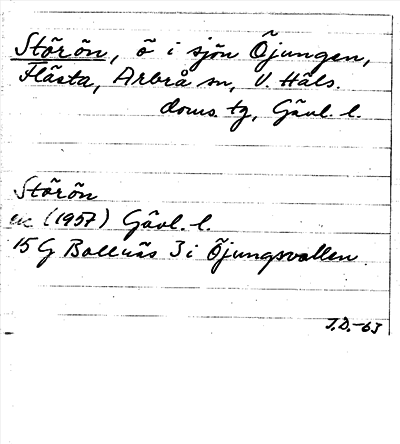 Störön, ö i sjön Öjungen,
Flästa, Arbrå sn, V. Häls.
doms. tg, Gävl. l.
Störön
ek (1957) Gävl. l.
15 G Bollnäs 3 i Öjungsvallen
J.D.-63